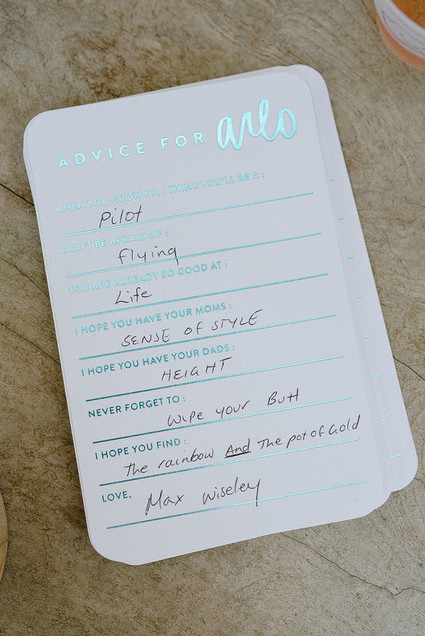 ADVICE FOR arlo
WHEN YOU GROW UP, I THINK YOU'LL BE A :
Pilot
DON'T BE AFRAID OF :
Flying
YOU ARE ALREADY SO GOOD AT :
Life
I HOPE YOU HAVE YOUR MOMS :
SENSE OF STYLE
I HOPE YOU HAVE YOUR DADS :
HEIGHT
NEVER FORGET TO :
Wipe your Butt
I HOPE YOU FIND :
The rainbow And The pot of Gold
LOVE,
Max Wiseley